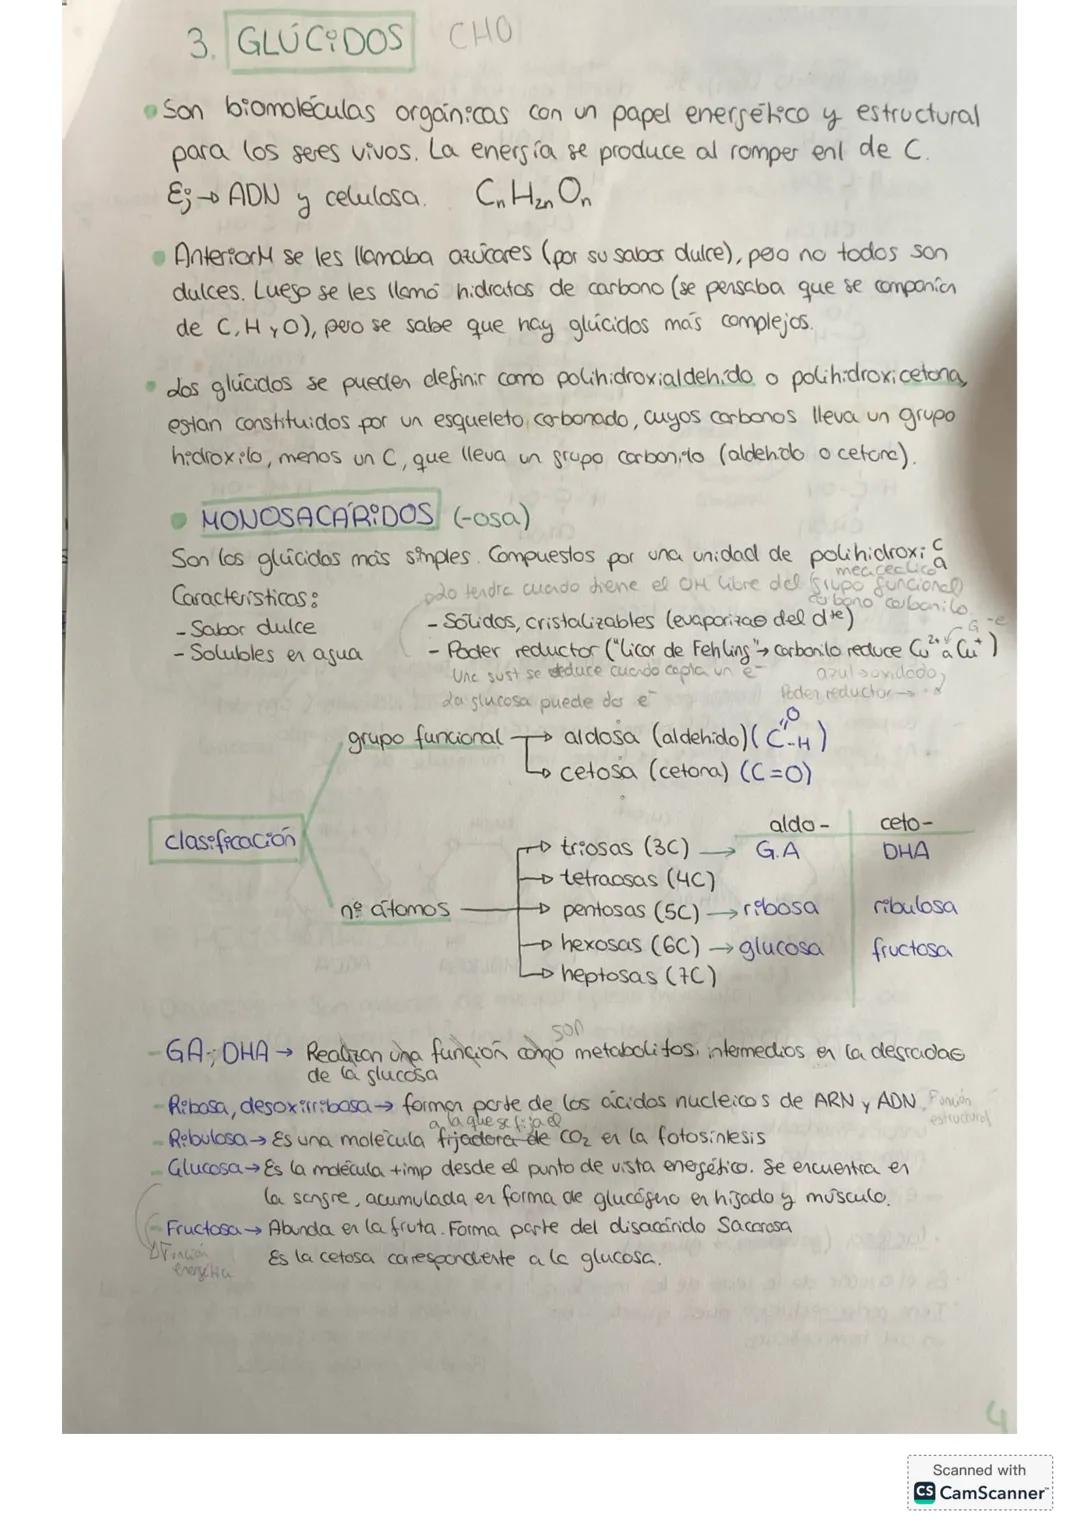 3. GLÚCIDOS CHO
Son biomoléculas orgánicas con un papel energético y estructural
para los seres vivos. La energía se produce al romper enl de C.
Ej → ADN y celulosa. CnH2nOn
AnteriorM se les llamaba azúcares (por su sabor dulce), pero no todos son
dulces. Luego se les llamó hidratos de carbono (se pensaba que se componían
de C, H y O), pero se sabe que hay glúcidos más complejos.
Los glúcidos se pueden definir como polihidroxialdehido o polihidroxicetona,
estan constituidos por un esqueleto carbonado, cuyos carbonos lleva un grupo
hidroxilo, menos un C, que lleva un grupo carbonilo (aldehido o cetona).
MONOSACÁRIDOS (-osa)
Son los glúcidos más simples. Compuestos por una unidad de polihidroxi c a
Lo tendra cuando tiene el OH libre del grupo funcional
carbono carbonilo
Características:
- Sabor dulce
- Solubles en agua
- Sólidos, cristalizables (evaporizao del dte)
- Poder reductor ("Licor de Fehling" → carbonilo reduce Cu2+ a Cu+)
Una sust se reduce cuando capta un e-
azul oxidado
La glucosa puede dar e-
Poder reductor →
grupo funcional → aldosa (aldehido) (C=O-H)
→ cetosa (cetona) (C=O)
clasificación
aldo- ceto-
→ triosas (3C) → G.A DHA
→ tetraosas (4C)
nº átomos → pentosas (5C) → ribosa ribulosa
→ hexosas (6C) → glucosa fructosa
→ heptosas (7C)
son
- GA; DHA → Realizan una función como metabolitos intermedios en la desgradas
de la glucosa
- Ribosa, desoxirribosa → forman parte de los ácidos nucleicos de ARN y ADN Función estructural
a la que se fija el
- Ribulosa → Es una molécula fijadora de CO2 en la fotosíntesis
- Glucosa → Es la molécula +imp desde el punto de vista energético. Se encuentra en
la sangre, acumulada en forma de glucógeno en hígado y músculo.
- Fructosa → Abunda en la fruta. Forma parte del disacárido Sacarosa
Es la cetosa correspondiente a la glucosa.
Función
energética
4
Scanned with
CS CamScanner